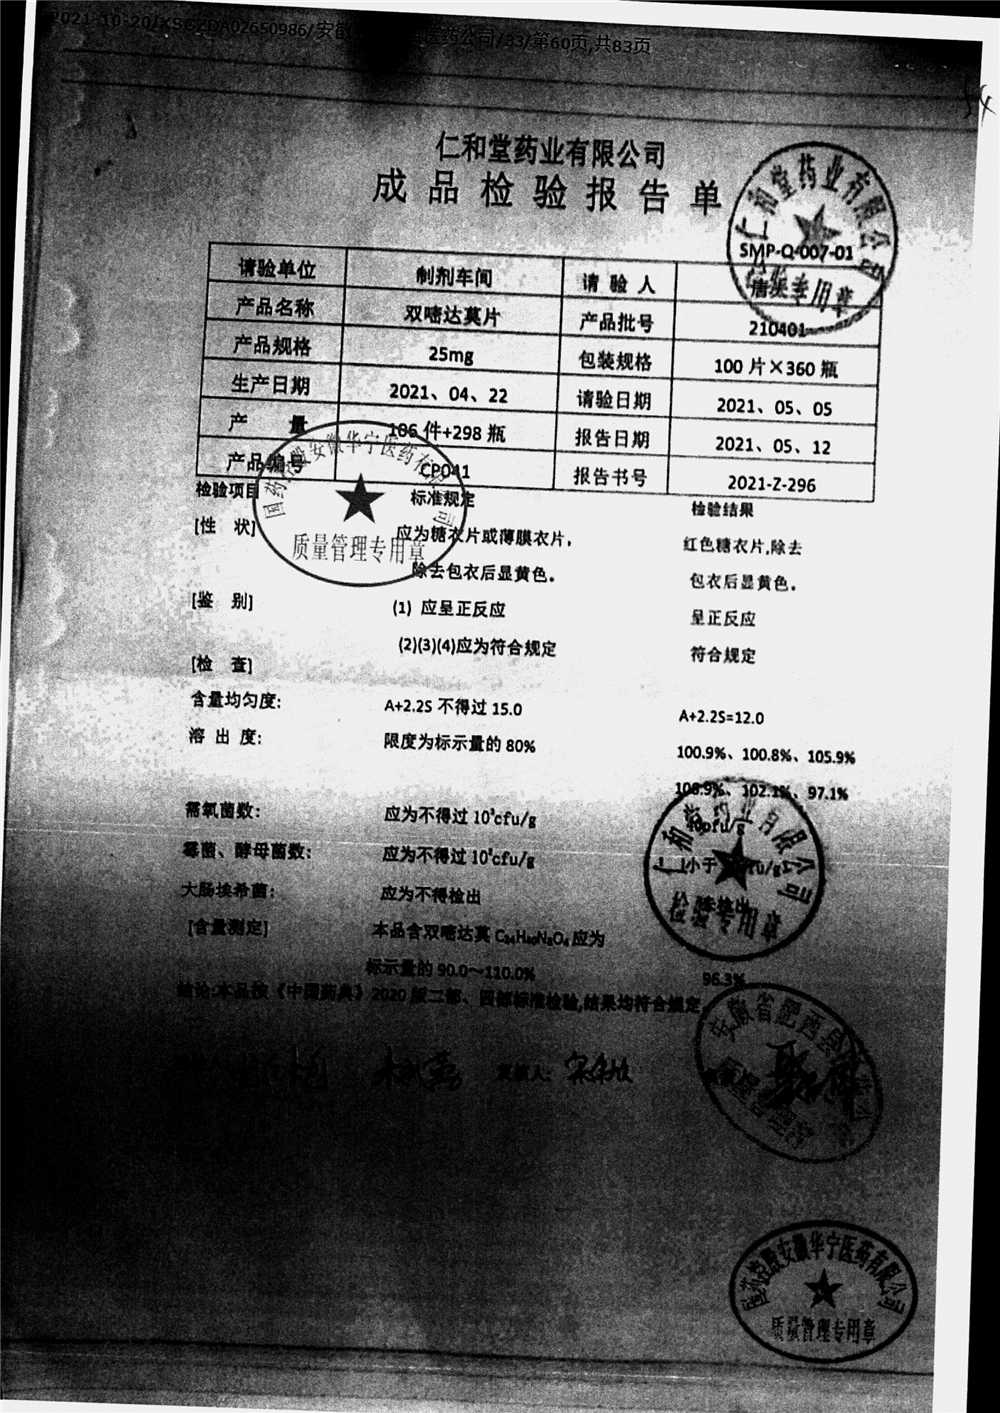 2021-10-20/XSGZDA02650986/安徽 医药公司/33/第60页,共83页
仁和堂药业有限公司
成品检验报告单
SMP-Q-007-01
仁和堂药业有限公司
检验专用章
请验单位 制剂车间 请验人
产品名称 双嘧达莫片 产品批号 210401
产品规格 25mg 包装规格 100片×360瓶
生产日期 2021、04、22 请验日期 2021、05、05
产 量 106件+298瓶 报告日期 2021、05、12
产品编号 CP041 报告书号 2021-Z-296
国药控股安徽华宁医药有限公司
质量管理专用章
检验项目 标准规定 检验结果
[性 状] 应为糖衣片或薄膜衣片， 红色糖衣片,除去
除去包衣后显黄色。 包衣后显黄色。
[鉴 别] (1) 应呈正反应 呈正反应
(2)(3)(4)应为符合规定 符合规定
[检 查]
含量均匀度: A+2.2S不得过15.0 A+2.2S=12.0
溶出度: 限度为标示量的80% 100.9%、100.8%、105.9%
106.9%、102.1%、97.1%
需氧菌数: 应为不得过10³cfu/g
霉菌、酵母菌数: 应为不得过10²cfu/g 小于
大肠埃希菌: 应为不得检出
仁和堂药业有限公司
检验专用章
[含量测定] 本品含双嘧达莫C₂₄H₄₀N₈O₄应为
标示量的90.0～110.0% 96.3%
结论:本品按《中国药典》2020版二部、四部标准检验,结果均符合规定
安徽省肥西县
国药控股安徽华宁医药有限公司
质量管理专用章